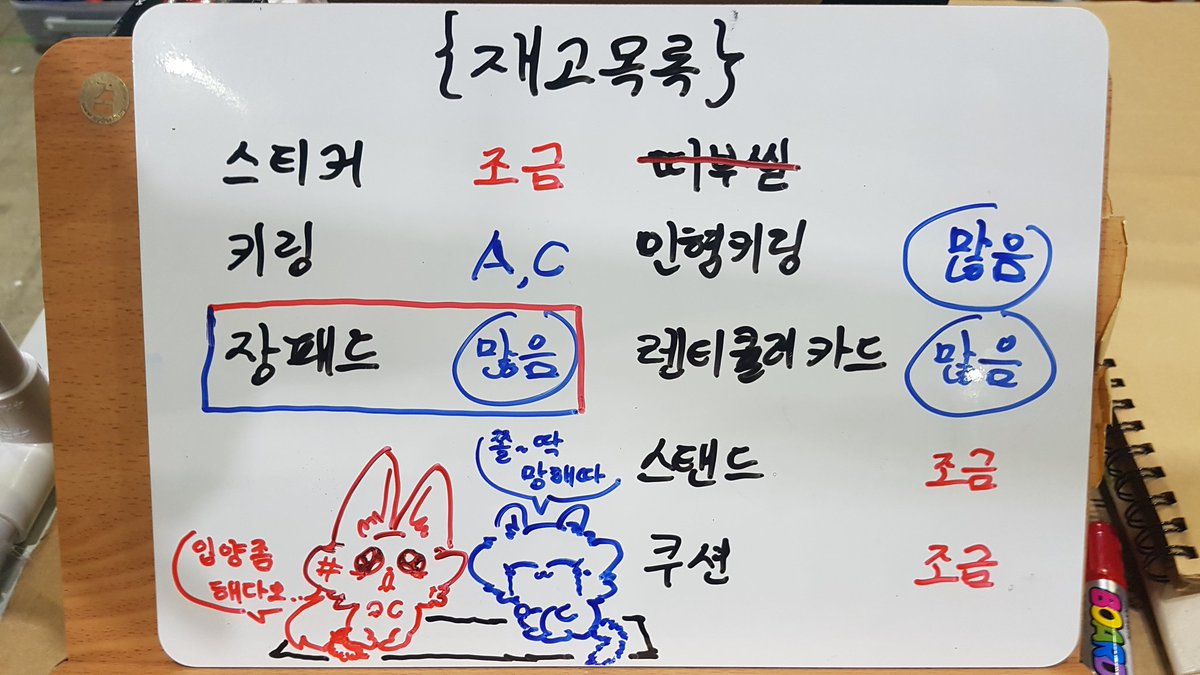 {재고목록}
스티커 조금
키링 A,C
장패드 많음
띠부씰
인형키링 많음
렌티큘러카드 많음
스탠드 조금
쿠션 조금
쫄~딱
망해따
입양좀
해다오..
BOARD